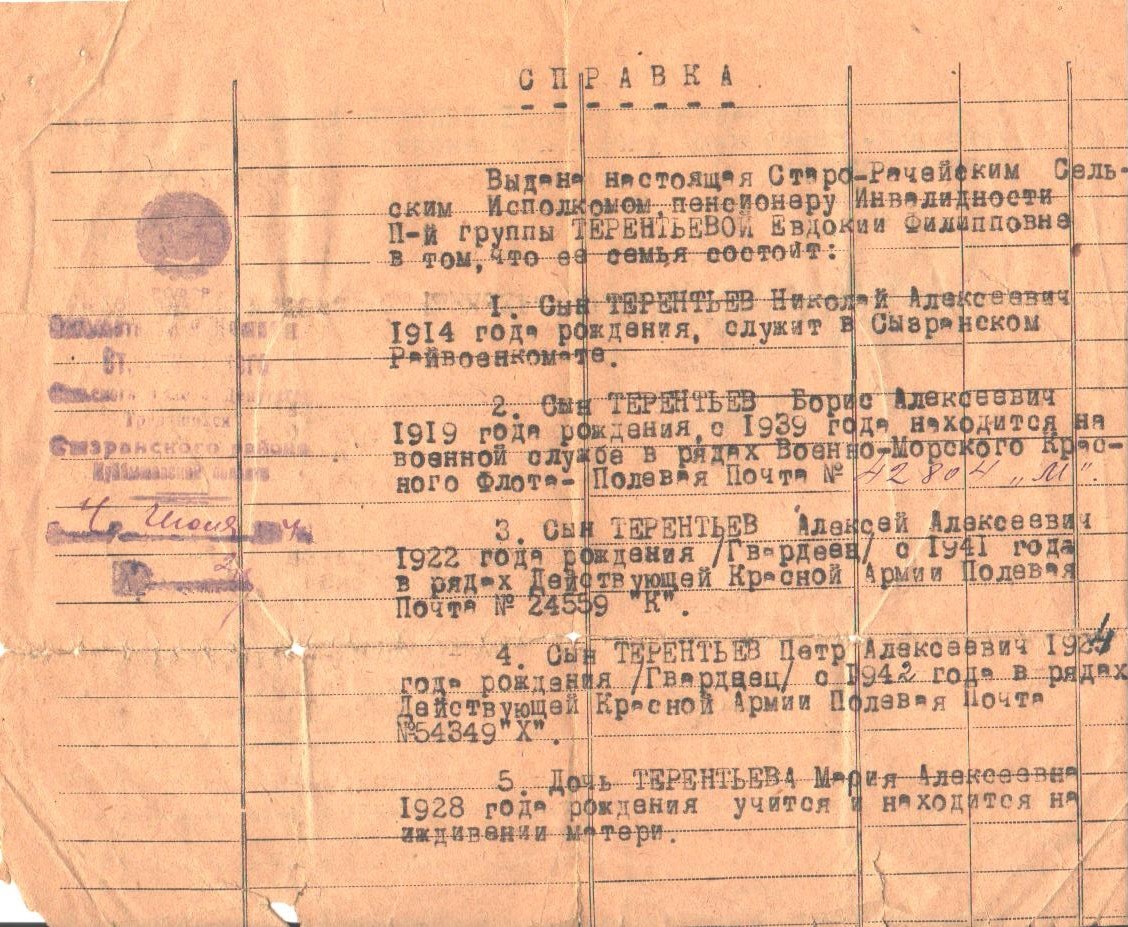 СПРАВКА
Выдана настоящая Старо-Рачейским Сель-
ским Исполкомом,пенсионеру Инвалидности
П-й группы ТЕРЕНТЬЕВОЙ Евдокии Филипповне
в том,что ее семья состоит:
1. Сын ТЕРЕНТЬЕВ Николай Алексеевич
1914 года рождения, служит в Сызранском
Райвоенкомате.
2. Сын ТЕРЕНТЬЕВ Борис Алексеевич
1919 года рождения,с 1939 года находится на
военной службе в рядах Военно-Морского Крас-
ного Флота- Полевая Почта № 42804 „М".
3. Сын ТЕРЕНТЬЕВ Алексей Алексеевич
1922 года рождения /Гвардеец/ с 1941 года
в рядах Действующей Красной Армии Полевая
Почта № 24559 "К".
4. Сын ТЕРЕНТЬЕВ Петр Алексеевич 1924
года рождения /Гвардеец/ с 1942 года в рядах
Действующей Красной Армии Полевая Почта
№54349"Х".
5. Дочь ТЕРЕНТЬЕВА Мария Алексеевна
1928 года рождения учится и находится на
иждивении матери.
Сызранского района
4 Июля
№